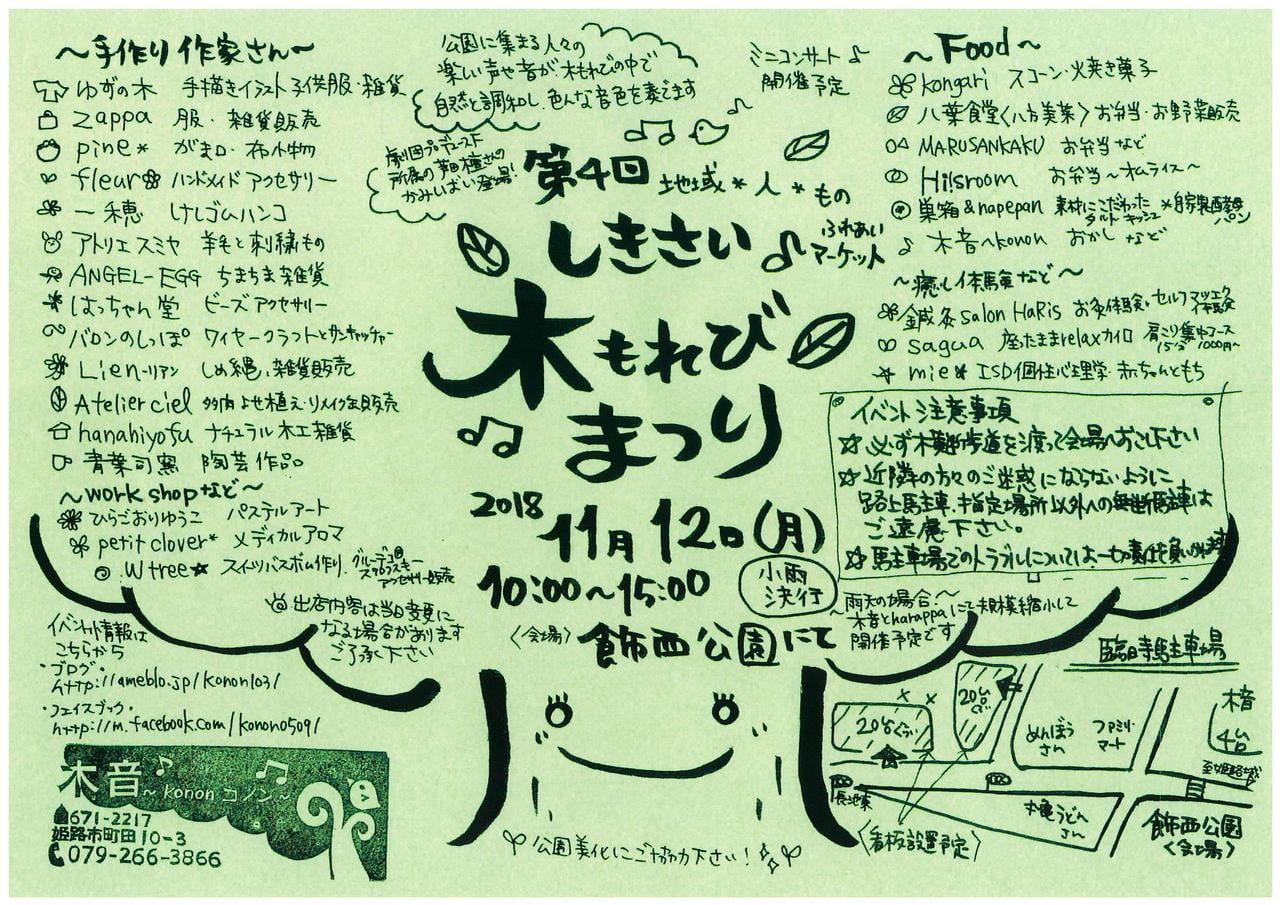 ～手作り作家さん～
ゆずの木 手描きイラスト子供服・雑貨
zappa 服・雑貨販売
pine* がま口・布小物
fleur ハンドメイドアクセサリー
一穂 けしゴムハンコ
アトリエスミヤ 羊毛と刺繍もの
ANGEL-EGG ちまちま雑貨
はっちゃん堂 ビーズアクセサリー
バロンのしっぽ ワイヤークラフトとサンキャッチャー
Lien-リアン しめ縄・雑貨販売
Atelier ciel 多肉よせ植え・リメイク缶販売
hanahiyofu ナチュラル木工雑貨
青葉司窯 陶芸作品
～work shopなど～
ひらごおりゆうこ パステルアート
petit clover* メディカルアロマ
W tree★ スイーツバスボム作り、グルーデコ®
スワロフスキー
アクセサリー販売
出店内容は当日変更に
なる場合があります
ご了承下さい
イベント情報は
こちらから
・ブログ・
http://ameblo.jp/konon103/
・フェイスブック・
http://m.facebook.com/konon0509/
木音♪
～kononコノン～
671-2217
姫路市町田10-3
079-266-3866
公園に集まる人々の
楽しい声や音が、木もれびの中で
自然と調和し、色んな音色を奏でます
ミニコンサート♪
開催予定
劇団プロデュースト
かみしばい登場!
第4回 地域*人*もの
しきさい
ふれあい
マーケット
木もれび
まつり
2018
11月12日(月)
10:00～15:00
小雨
決行
〈会場〉 飾西公園にて
公園美化にご協力下さい!
～Food～
kongari スコーン・火焼き菓子
八葉食堂〈八方美菜〉お弁当・お野菜販売
MARUSANKAKU お弁当など
Hi!sroom お弁当～オムライス～
巣箱&napepan 素材にこだわった
タルト キッシュ
*自家製酵母
パン
♪ 木音～konon おかしなど
～癒し体験など～
鍼灸salon HaRis お灸体験・セルフマツエク
体験
sagua 座ったままrelaxカイロ 肩こり集中コース
15分 1000円～
mie★ ISD個性心理学・赤ちゃんともち
イベント注意事項
☆必ず横断歩道を渡って会場へおこし下さい
☆近隣の方々のご迷惑にならないように
路上駐車、指定場所以外への無断駐車は
ご遠慮下さい。
☆駐車場でのトラブルについては、一切責任負いかねます
雨天の場合～
木音とharappaにて規模縮小して
開催予定です
臨時駐車場
20台
20台くらい
めんぼう
さん
ファミリー
マート
木音
4台
至姫路城
亀うどん
さん
飾西公園
〈会場〉
〈看板設置予定〉